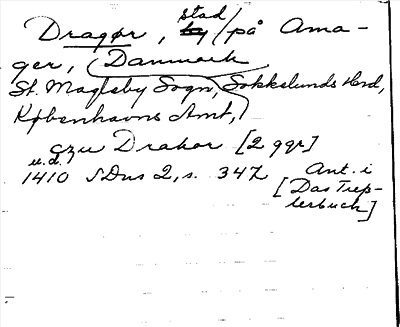 Dragør, stad / på Ama-
ger, Danmark
St. Magleby Sogn, Sokkelunds Hrd,
Københavns Amt,
czu Drakor [2 ggr]
u.d.
1410 SDns 2, s. 347. Ant. i
[Das Trep-
lerbuch]